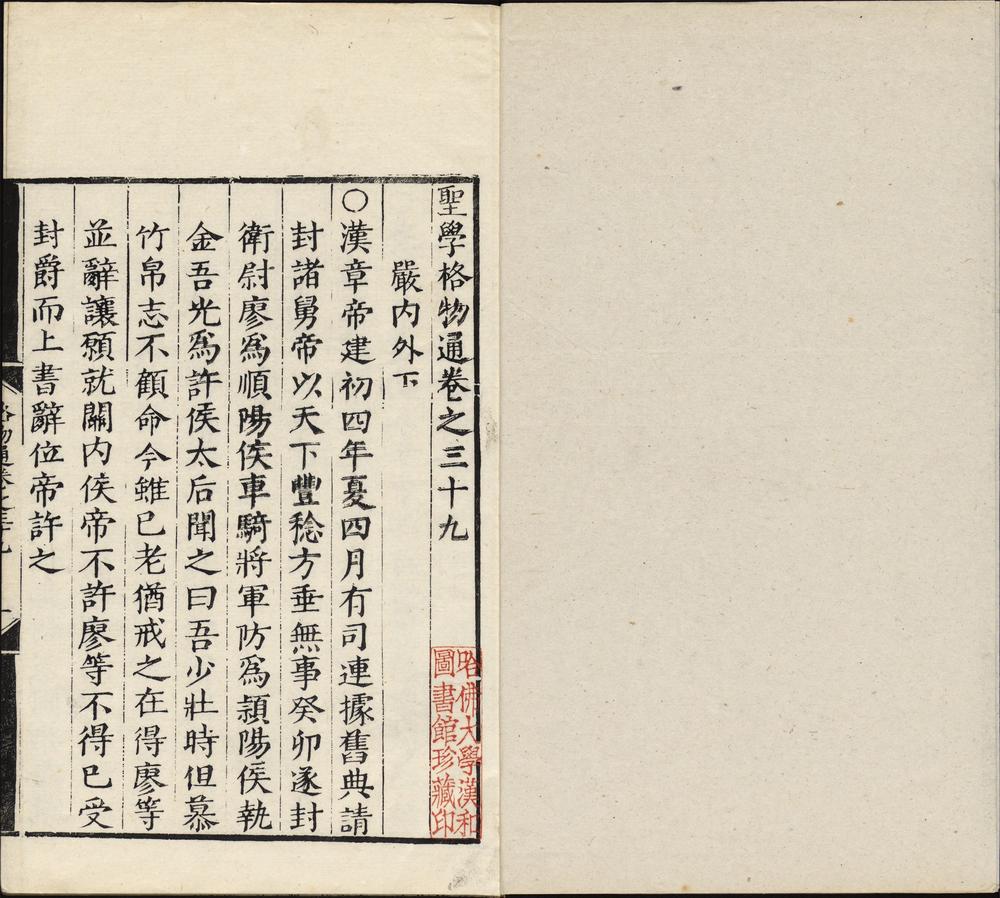 聖學格物通卷之三十九
嚴内外下
○漢章帝建初四年夏四月有司連據舊典請
封諸舅帝以天下豐稔方垂無事癸卯遂封
衛尉廖爲順陽侯車騎將軍防爲潁陽侯執
金吾光爲許侯太后聞之曰吾少壯時但慕
竹帛志不顧命今雖已老猶戒之在得廖等
並辭讓願就關内侯帝不許廖等不得已受
封爵而上書辭位帝許之
哈佛大學漢和
圖書館珍藏印
格物通卷之三十九
一